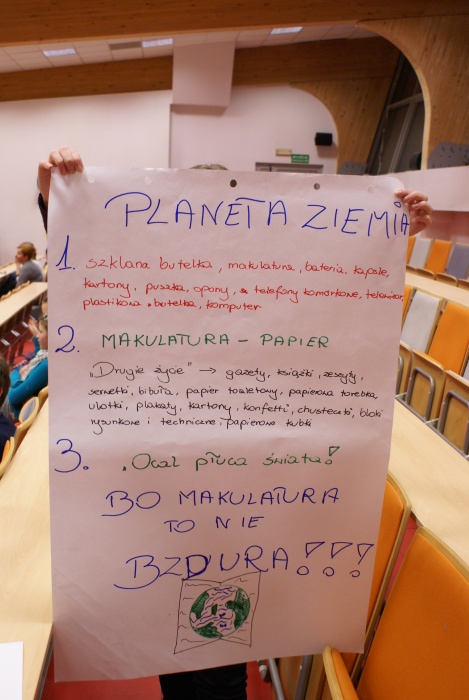 PLANETA ZIEMIA
1. szklana butelka, makulatura, bateria, kapsle,
kartony, puszka, opony, telefony komórkowe, telewizor,
plastikowa butelka, komputer
2. MAKULATURA - PAPIER
"Drugie życie" → gazety, książki, zeszyty,
serwetki, bibuła, papier toaletowy, papierowa torebka,
ulotki, plakaty, kartony, konfetti, chusteczki, bloki
rysunkowe i techniczne, papierowe kubki
3. "Ocal płuca świata!
BO MAKULATURA
TO NIE
BZDURA!!!